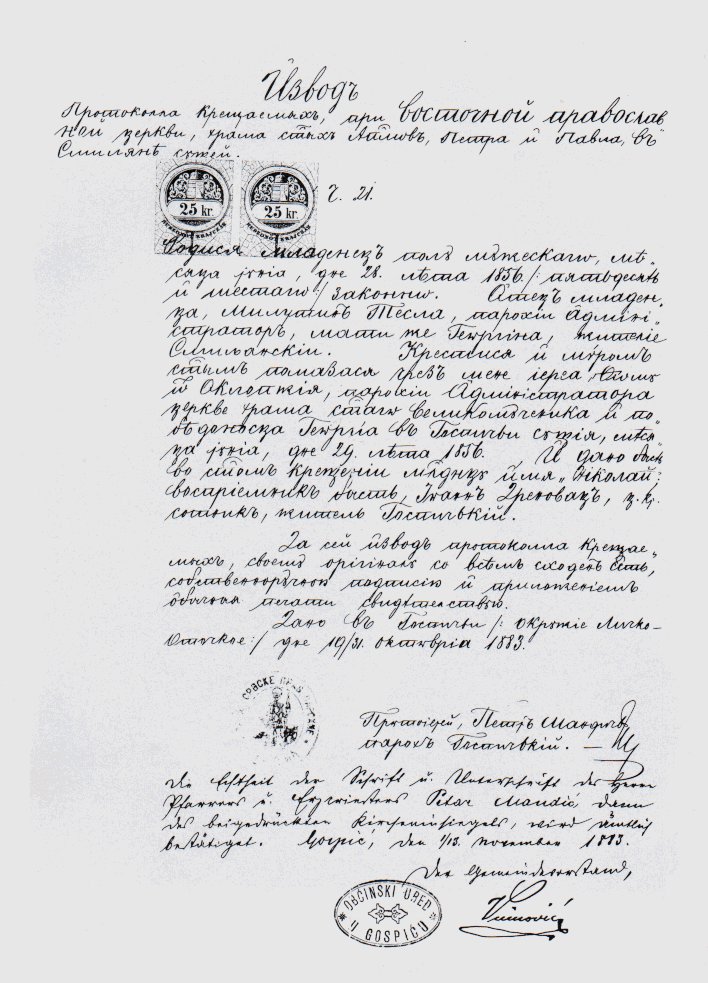 Изводъ
Протоколла Крещаемыхъ, при восточной православ
ной церкви, храма стыхъ Апловъ, Петра и Павла, въ
Смилянѣ сущей.
25 kr. 25 kr.
Ч. 21.
Родися младенецъ полꙋ мꙋжескаго, мѣ„
сяца јунiа, дне 28. лѣта 1856 /: пятьдесять
и шестаго :/ законно. Отецъ младен„
ца, Милутинъ Тесла, парохiи Адмiнi„
страторъ, мати же Геѡргiна, жителiе
Смилянскiи. Крестися и мѵромъ
стымъ помазася чрезъ мене iерea
парохiи Адмiнiстратора
церкве храма стагѡ великомꙋченика и по„
бѣдоносца Геѡргiа въ Госпичѣ сꙋщiя, мѣся„
ца јунiа, дне 29. лѣта 1856. И дано бысть
во стомъ крещенiи мл҃дцꙋ имя „Нiколай:
воспрiемникъ бысть, Iоанъ Дреновацъ, ц. кр.
сотникъ, житель Госпичкiй.
За сей изводъ протоколла Крещае„
мыхъ, своемꙋ орiгiналꙋ со всѣмъ сходенъ есть,
собственнорꙋчною подписiю и приложенiемъ
обычная печати свидѣтельствꙋю.
Дано въ Госпичѣ /: окрꙋжiе Личко-
Оточкое :/ дне 19/31. октѡврiа 1883.
СРБСКЕ ПРАВ
Протоiерей, Петръ Мандичъ
парохъ Госпичкiй.
Die Echtheit der Schrift u. Unterschrift des Herrn
Pfarrers u. Erzpriesters Petar Mandić dann
des beigedrückten Kircheninsiegels, wird ämtlich
bestätiget. Gospić, den 1/13. November 1883.
Der Gemeindevorstand,
OBĆINSKI URED
U GOSPIĆU